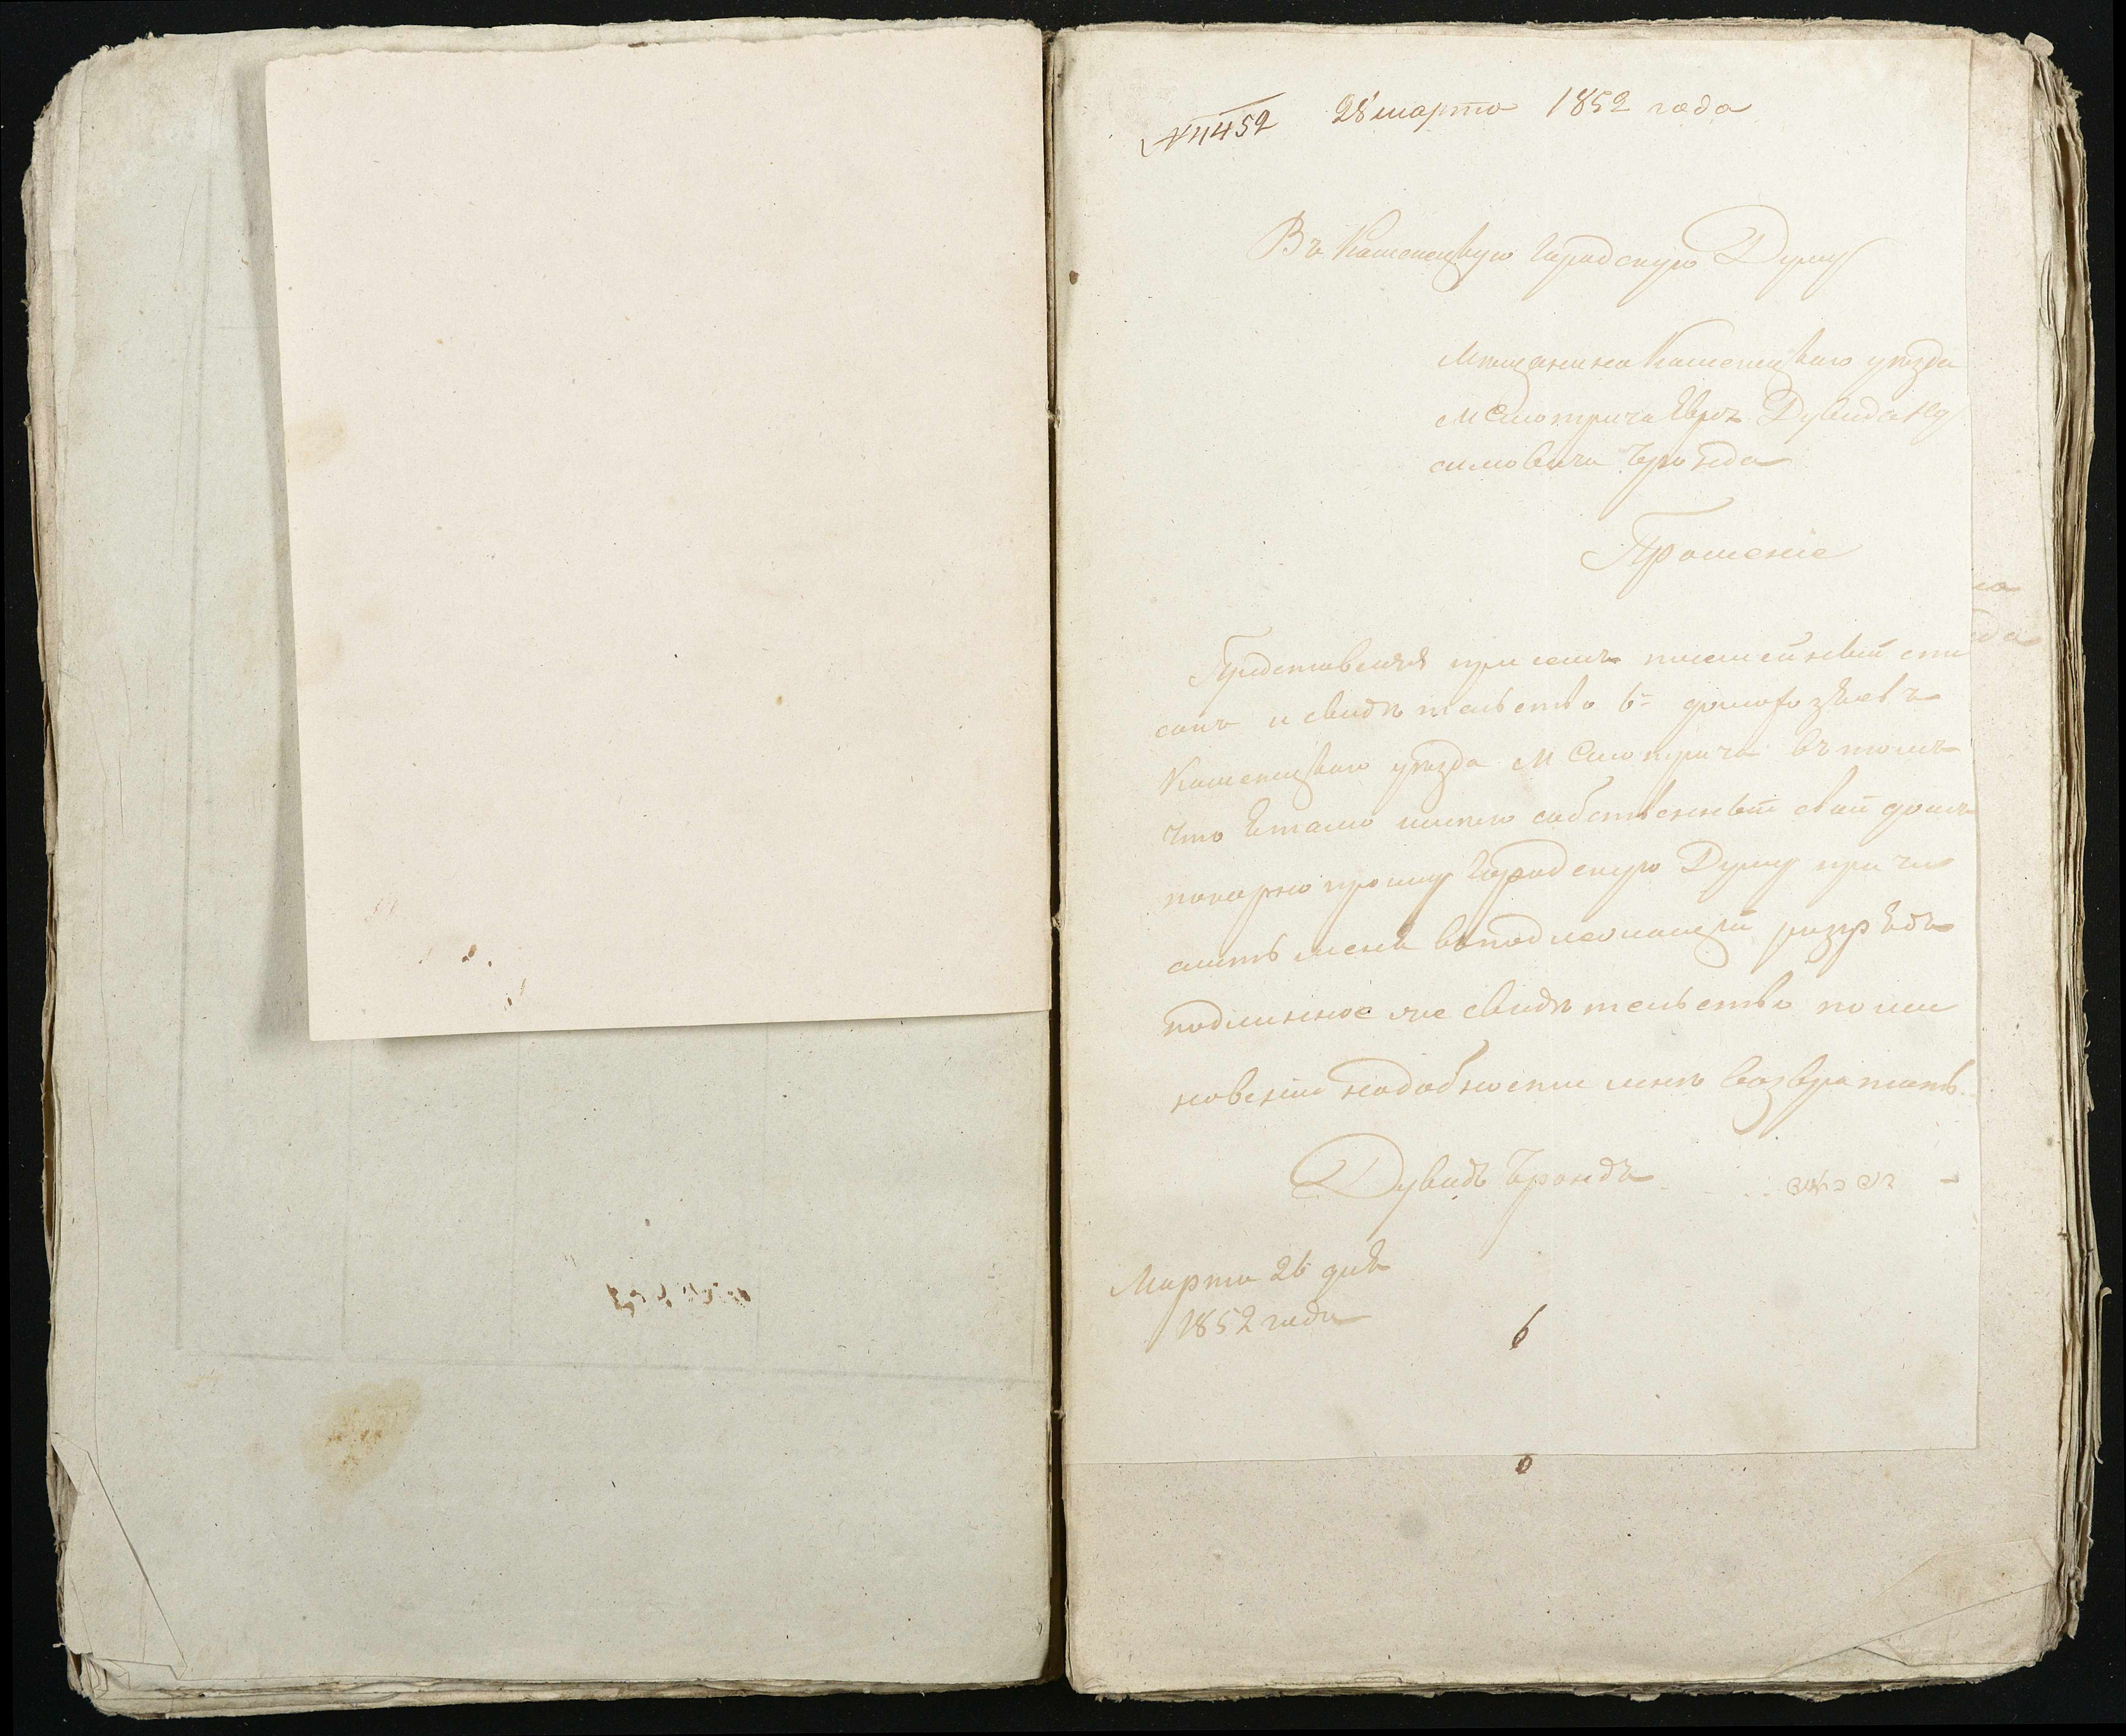 № 1452 28 марта 1852 года
Въ Каменецкую Городскую Думу
Мѣщанина Каменецкаго уѣзда
М Смотрича Еврея Дувида Ну
симовича Бронда
Прошеніе
Представляя при семъ посемейный спи
сокъ и свидѣтельство 6ти домохозяевъ
Каменецкаго уѣзда М Смотрича въ томъ
что я тамо имѣю собственный свой домъ
покорно прошу Городскую Думу причи
слить меня въ подлежащій разрядъ
подлинное же свидѣтельство по ми
новеніи надобности мнѣ возвратить.
Дувидъ Брондъ
Марта 26 дня
1852 года
6